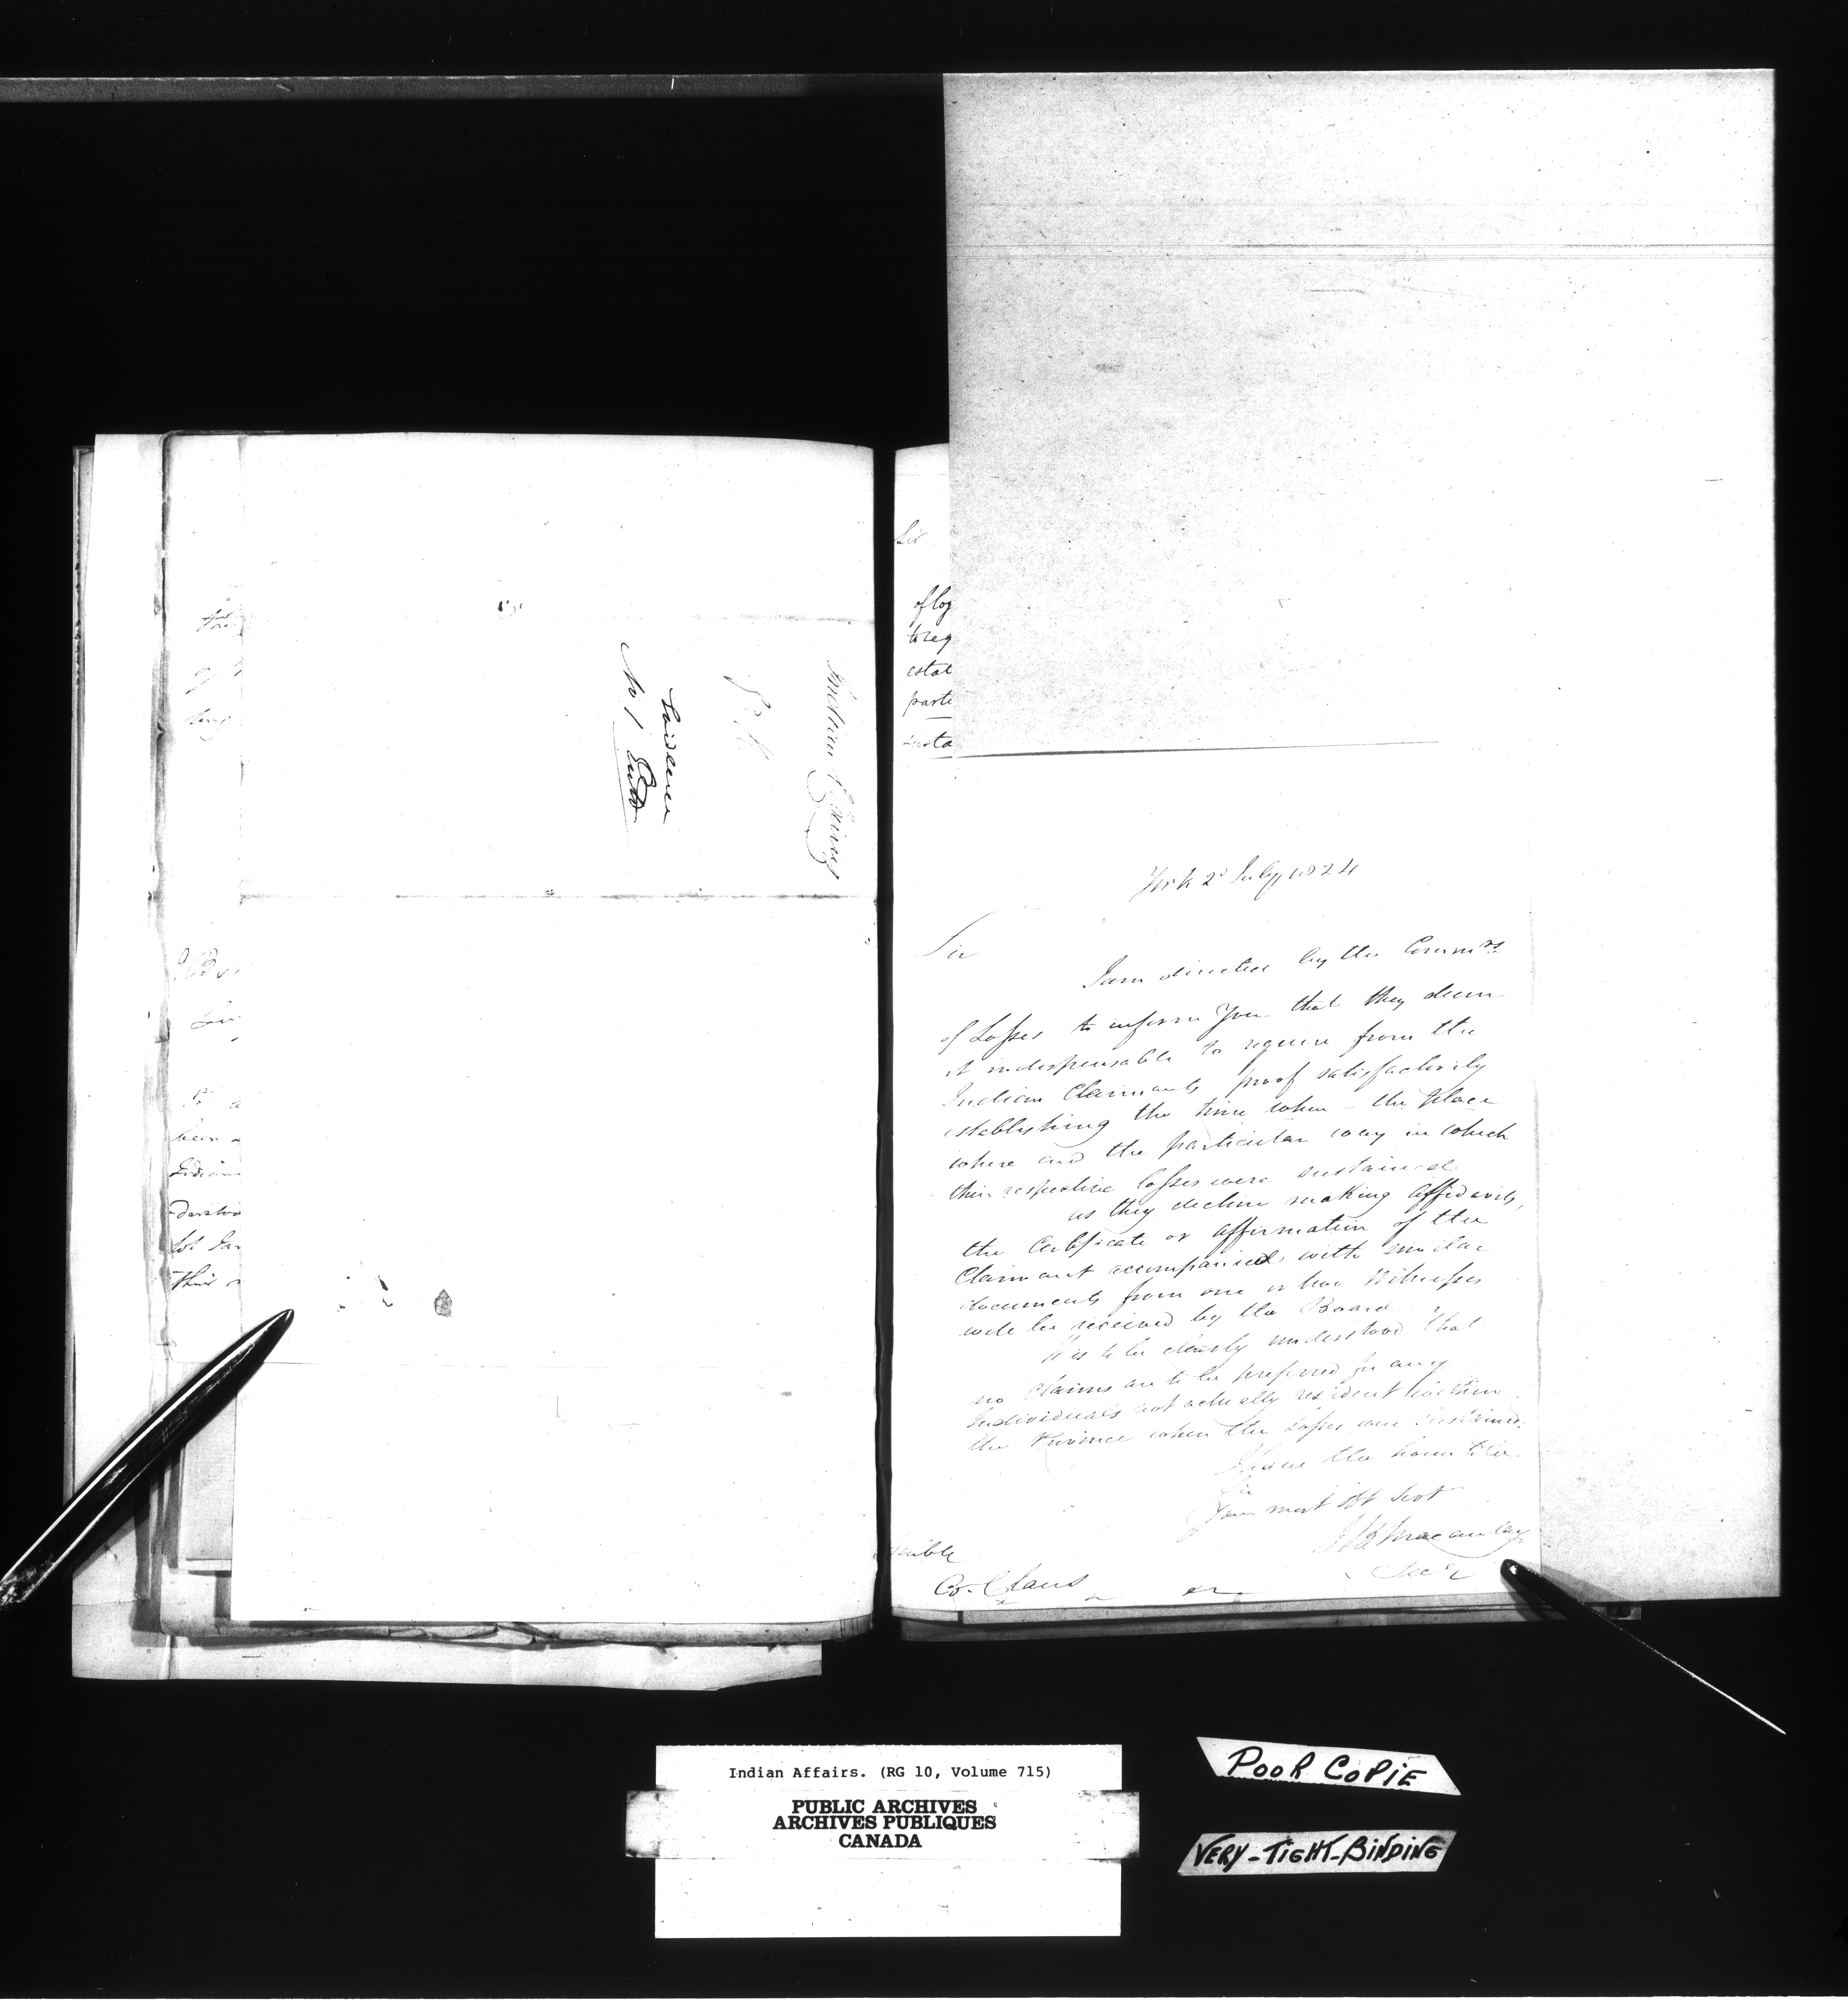 Indian Claims
Evidence
No 1
Sir
of los
to req
estab
parti
susta
York 2d July 1824
Sir
I am directed by the Commrs
of Losses to inform You that they deem
it indispensable to require from the
Indian Claimants proof satisfactorily
establishing the time when - the place
where and the particular way in which
their respective losses were sustained
as they decline making affidavits,
the Certificate or affirmation of the
Claimant accompanied with similar
documents from one or two Witnesses
will be received by the Board
It is to be clearly understood that
no Claims are to be preferred for any
Individuals not actually resident within
the Province when the Losses were sustained.
I have the honor to be
Sir
Your most obt Servt
J B Macaulay
Secy
Col. Claus
been
Indian
Lot
their
Indian Affairs. (RG 10, Volume 715)
PUBLIC ARCHIVES
ARCHIVES PUBLIQUES
CANADA
POOR COPIE
VERY-TIGHT-BINDING